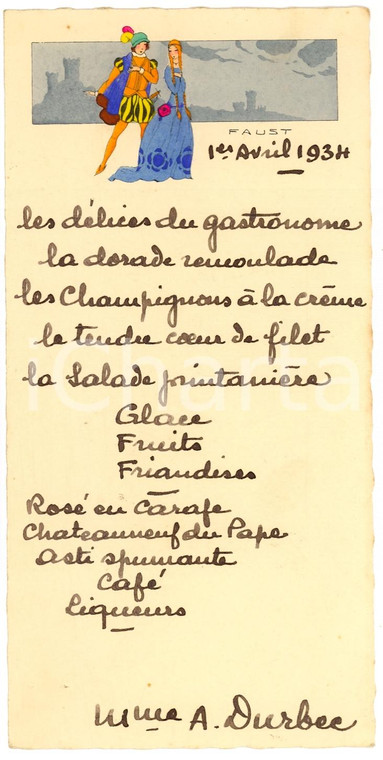 FAUST
1er Avril 1934
les délices du gastronome
la dorade remoulade
les Champignons à la crème
le tendre cœur de filet
la Salade printanière
Glace
Fruits
Friandises
Rosé en Carafe
Chateauneuf du Pape
Asti spumante
Café
Liqueurs
Mme A. Durbec
iCharta